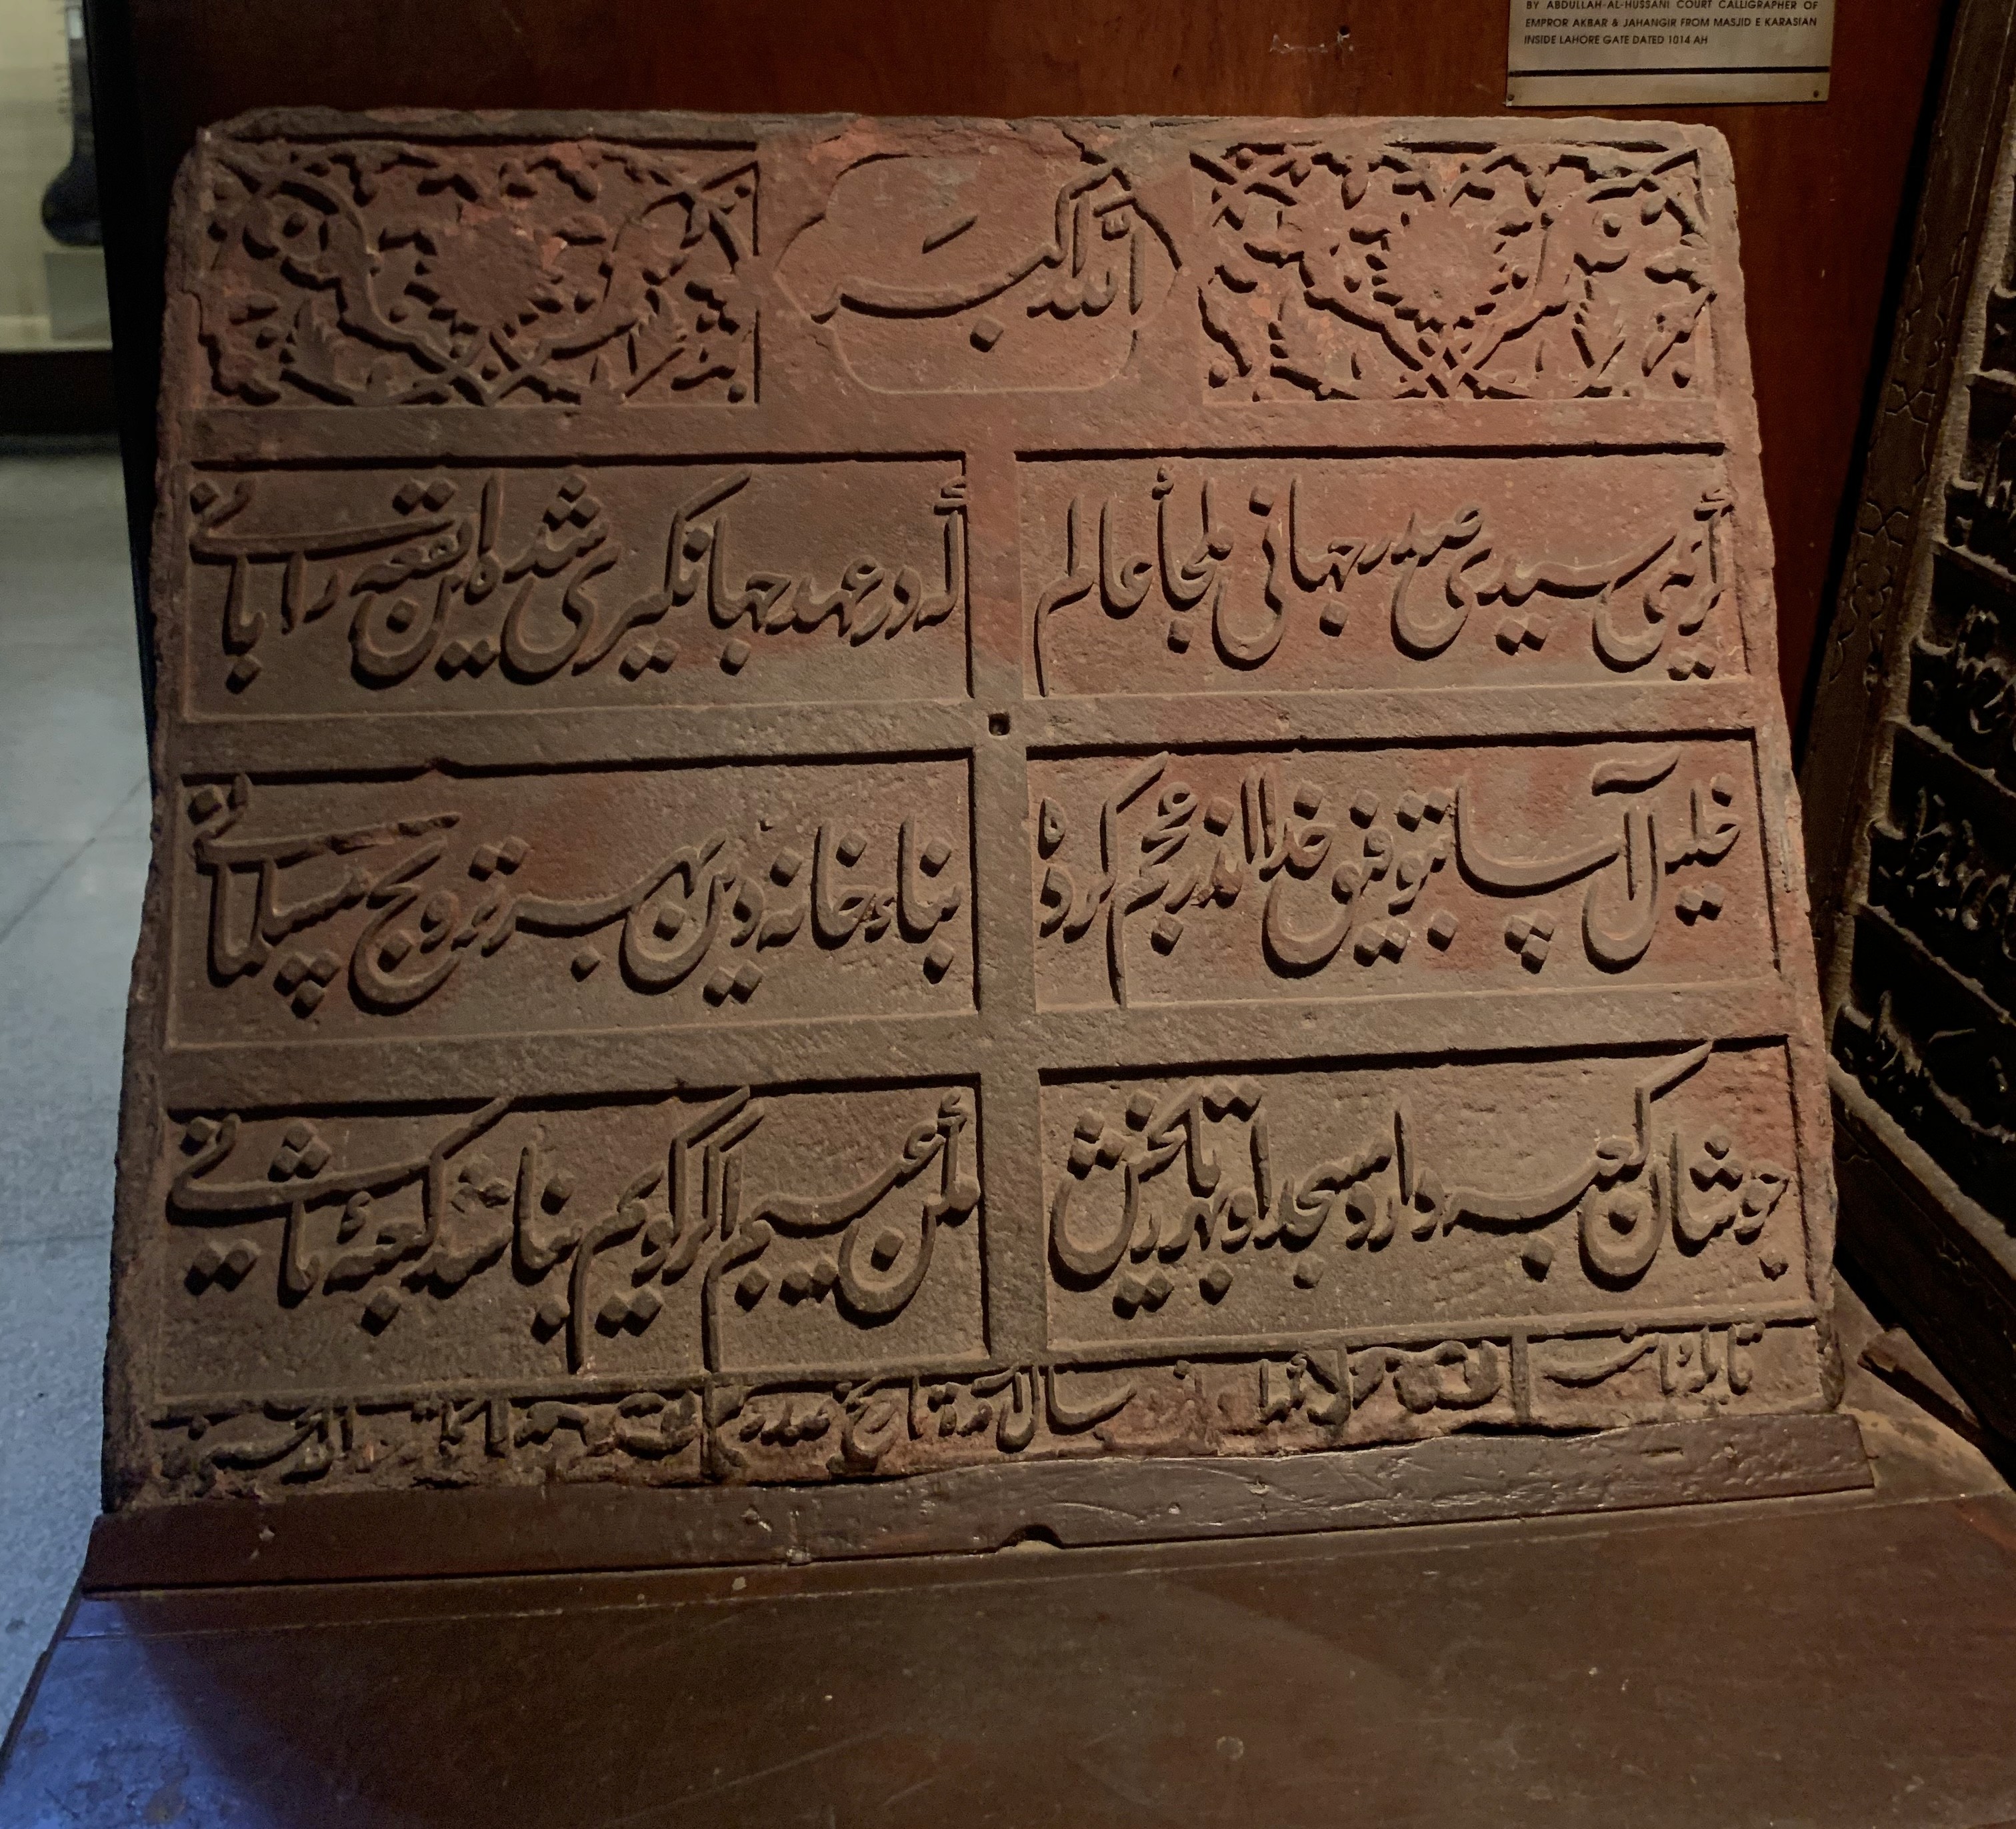 BY ABDULLAH-AL-HUSSANI COURT CALLIGRAPHER OF
EMPROR AKBAR & JAHANGIR FROM MASJID E KARASIAN
INSIDE LAHORE GATE DATED 1014 AH
الله اکبر
سیدی صدر جهانی ملجأ عالم
که در عهد جهانگیری شده این بقعه را بانی
خلیل آسا بتوفیق خدا اندر عجم کرده
بناء خانه دین بهر ترویج مسلمانی
چو شان کعبه دارد مسجد او بهر تاریخش
مکن عیبم اگر گویم بنا شد کعبهٔ ثانی
سال تاریخ